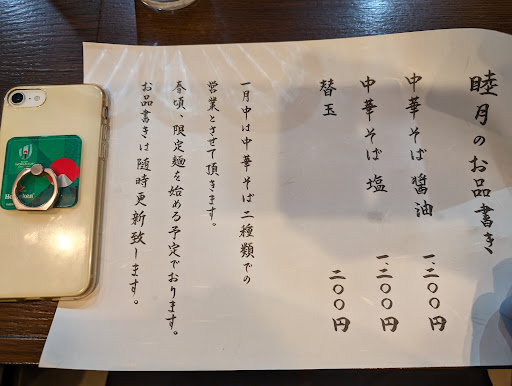 睦月のお品書き
中華そば 醤油 一、二〇〇円
中華そば 塩 一、二〇〇円
替玉 二〇〇円
一月中は中華そば二種類での
営業とさせて頂きます。
春頃、限定麺を始める予定でおります。
お品書きは随時更新致します。